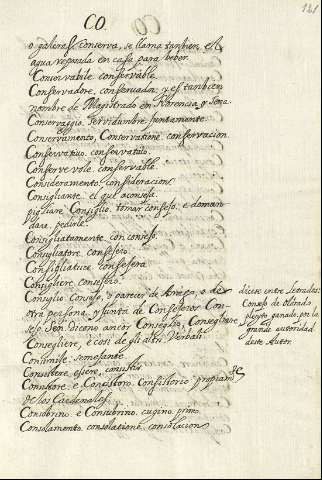 CO.
o galera, conserva, se llama tambien el
agua reposada en casa para beber.
Conservabile conservable.
Conservadore, conservador; y es tambien
nombre de Magistrado en Florencia, y Sena.
Conservaggio. servidumbre juntamente.
Conservamento, Conservatione. conservacion.
Conservativo. conservativo.
Conservevole. conservable.
Consideramento. consideracion.
Consigliante. el que aconseja.
pigliare Consiglio. tomar consejo. e doman-
dare. pedirle.
Consigliatamente. con consejo.
Consigliatore. consejero.
Consigliatrice. consejera.
Consigliere. consejero.
Consiglio. Consejo, o parecer de Amigo, o de
otra persona, y junta de Consejeros. Con-
sejo. Dicono ancor Conseglio, Consegliere
Consegliere, e così de gli altri Verbali.
Consimile. semejante.
Consistere. essere, consistir.
Consistore, e Concistoro. Consistorio propriamte
de los Cardenales.
Consobrino, e Consubrino. cugino. primo.
Consolamento. consolatione. consolacion.
dicese entre Letrados:
Consejo de Oldrado
pleyto ganado, por la
grande autoridad
deste Autor.